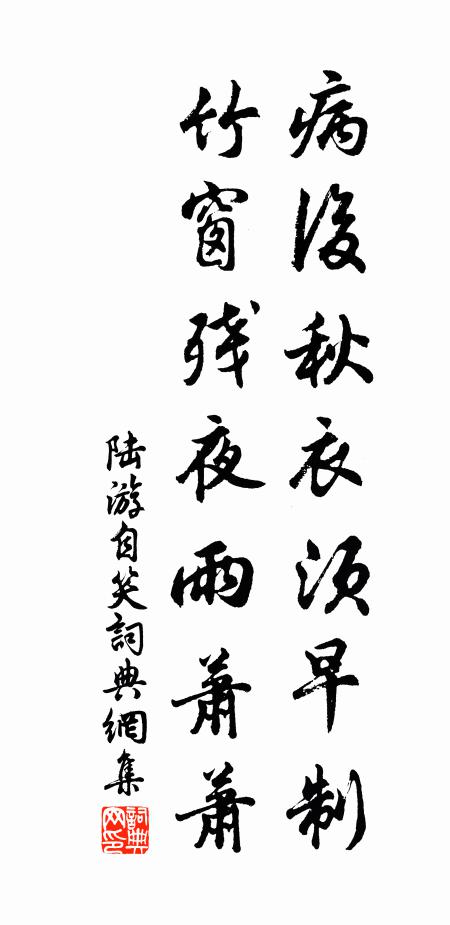 病後秋衣須早制
竹窗残夜雨蕭蕭
陸游自笑詞典網集
詞典
网印